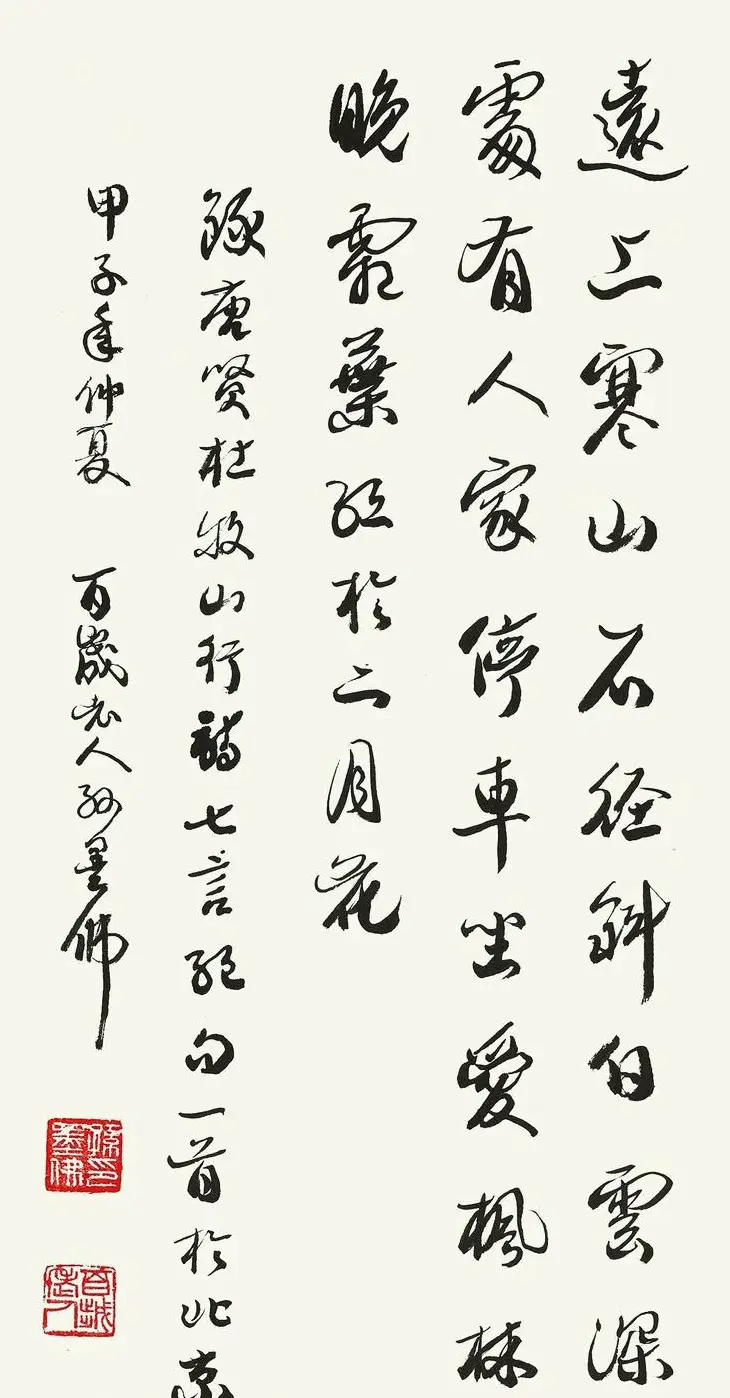 遠上寒山石徑斜白雲深
處有人家停車坐愛楓林
晚霜葉紅於二月花
錄唐賢杜牧山行詩七言絕句一首於北京
甲子年仲夏 百歲老人孫墨佛
孫印墨佛
百歲老人